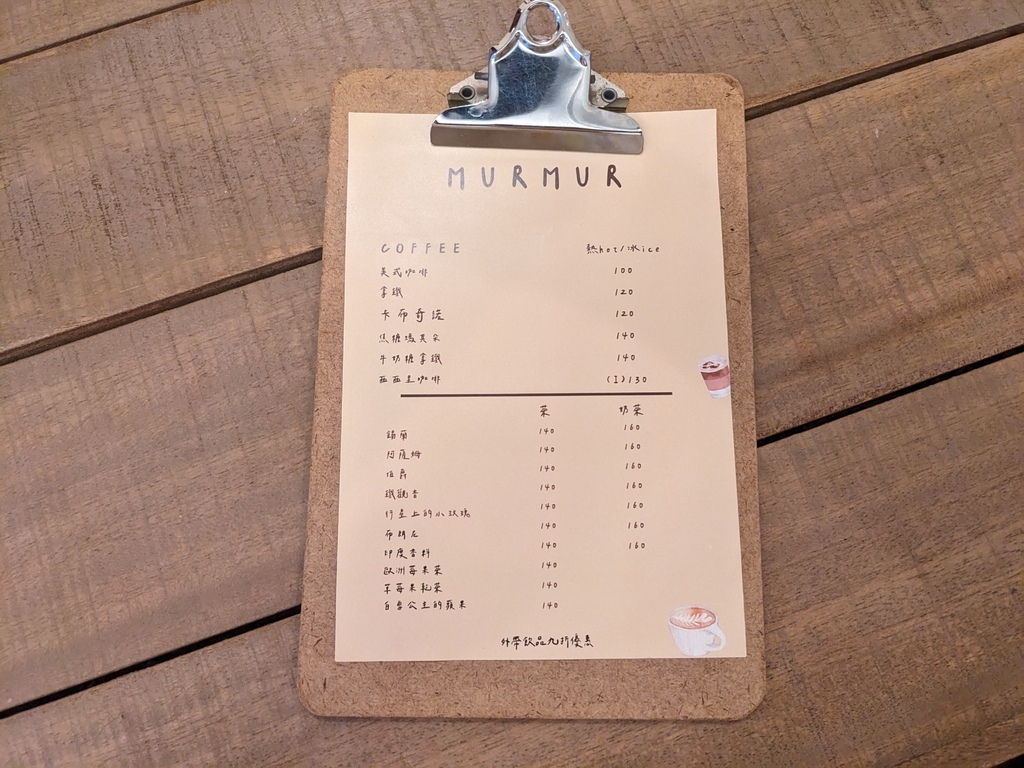 MURMUR
COFFEE 熱hot/冰ice
美式咖啡 100
拿鐵 120
卡布奇諾 120
焦糖瑪其朵 140
牛奶糖拿鐵 140
西西里咖啡 (I)130
茶 奶茶
錫蘭 140 160
阿薩姆 140 160
伯爵 140 160
鐵觀音 140 160
行星上的小玫瑰 140 160
布朗尼 140 160
印度香料 140 160
歐洲莓果茶 140
草莓果粒茶 140
白雪公主的蘋果 140
外帶飲品九折優惠